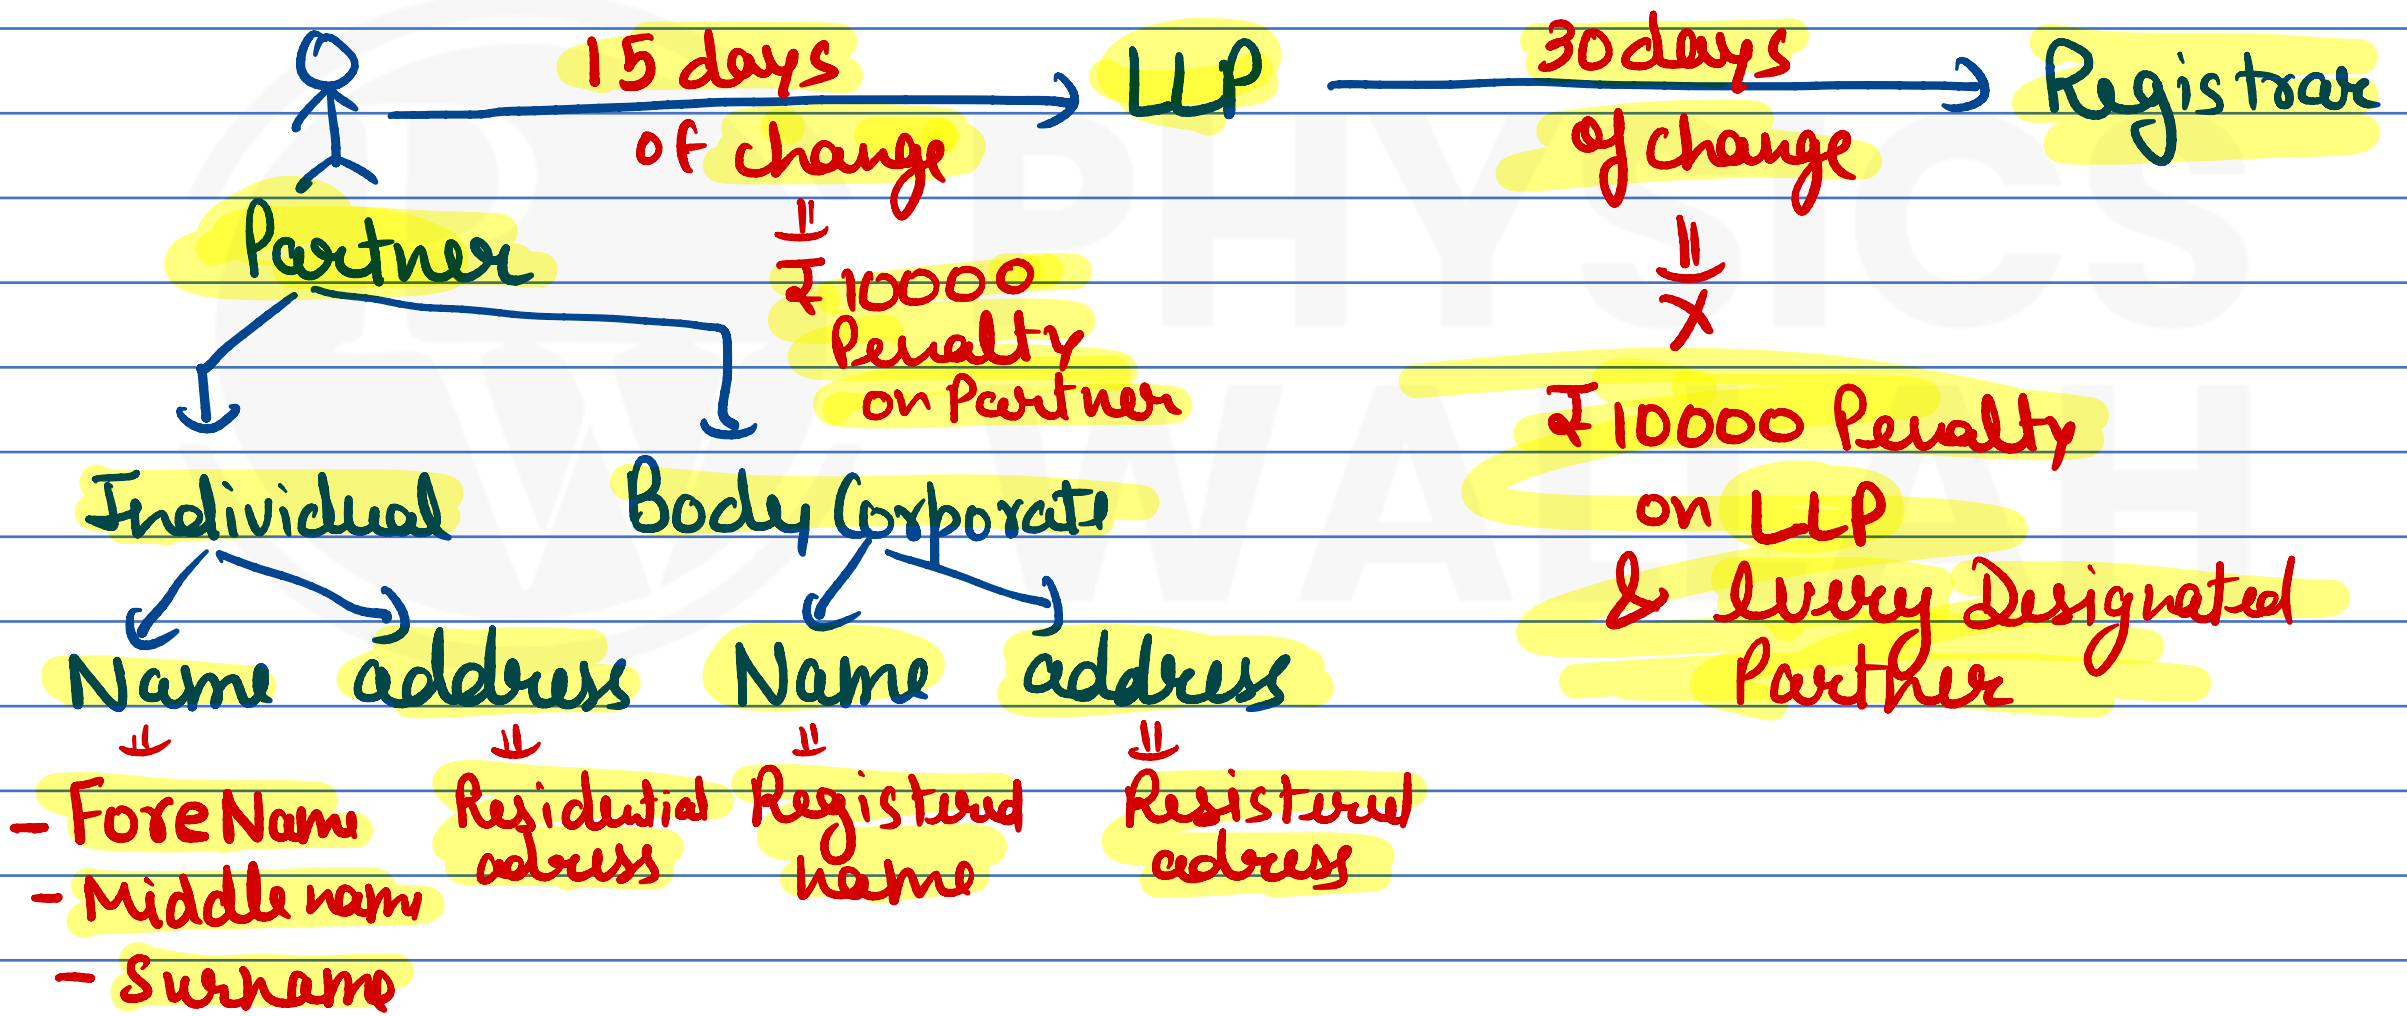 15 days
of change
LLP
30 days
of change
Registrar
Partner
₹10000
Penalty
on Partner
X
₹10000 Penalty
on LLP
& Every Designated
Partner
Individual
Body Corporate
Name
address
Name
address
- ForeName
- Middle name
- Surname
Residential
adress
Registered
name
Resistered
adress
PHYSICS
WALLAH